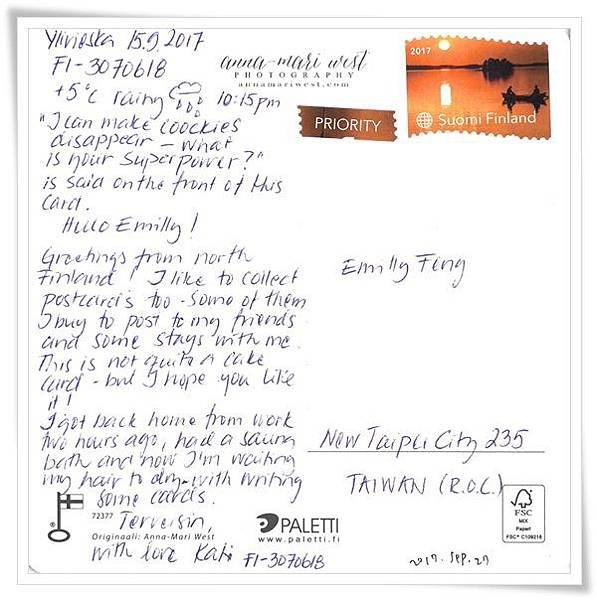 Ylivieska 15.9.2017
FI-3070618
+5°C rainy 10:15pm
"I can make coockies
disappear – what
is your superpower?"
is said on the front of this
card.
Hello Emilly!
Greetings from north
Finland! I like to collect
postcards too - some of them
I buy to post to my friends
and some stays with me.
This is not quite a cake
card - but I hope you like
it!
I got back home from work
two hours ago, had a sauna
bath and now I'm waiting
my hair to dry with writing
some cards.
Terveisin,
with love Kati FI-3070618
72377
Originaali: Anna-Mari West
anna-mari west
PHOTOGRAPHY
annamariwest.com
PRIORITY
2017
Suomi Finland
Emilly Feng
New Taipei City 235
TAIWAN (R.O.C.)
PALETTI
www.paletti.fi
FSC
MIX
Paper
FSC® C109218
2017. Sep. 27